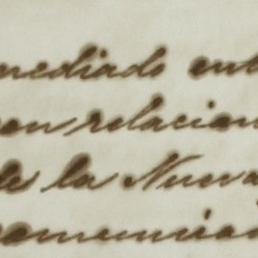 mediado ent
con relacion
de la Nueva
comunican